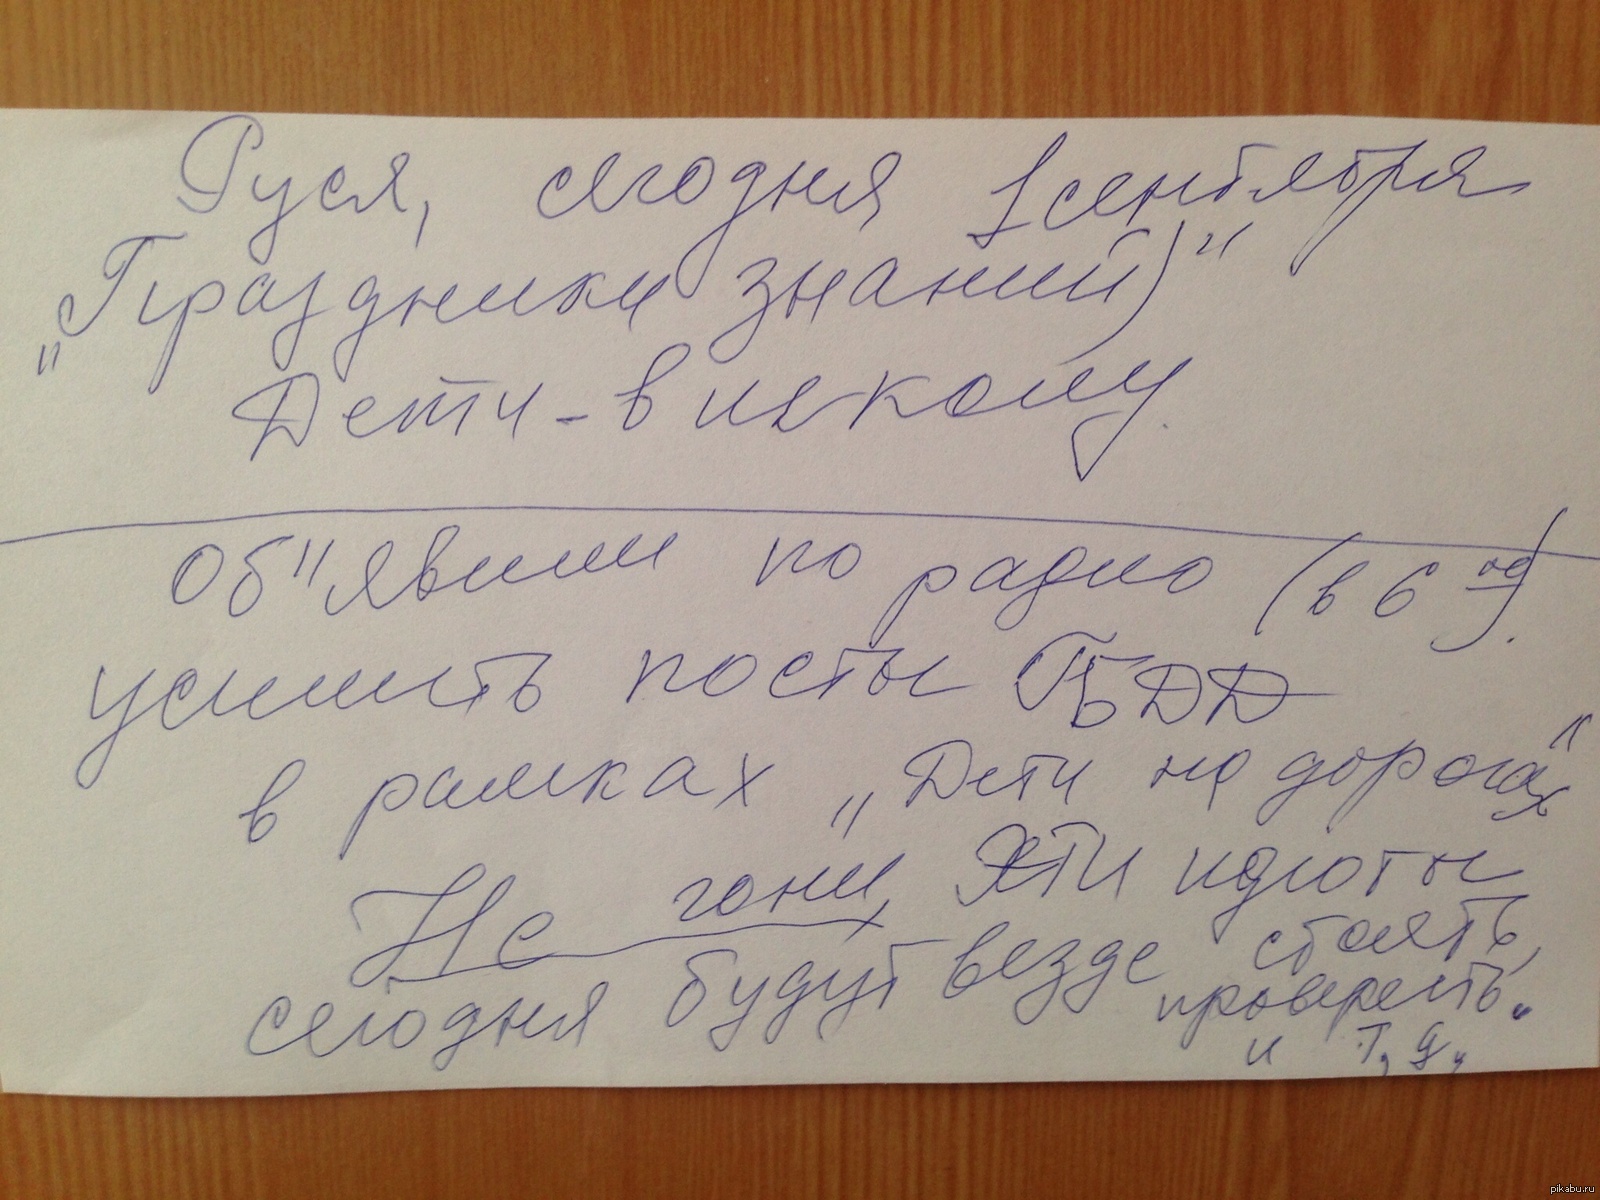 Руся, сегодня 1 сентября
"Праздники знаний"
Дети - в школу.
Об"явили по радио (в 6 00).
усилить посты ГБДД
в рамках "Дети на дорогах"
Не гони, Эти идиоты
сегодня будут везде стоять,
проверять.
и т, д,
pikabu.ru